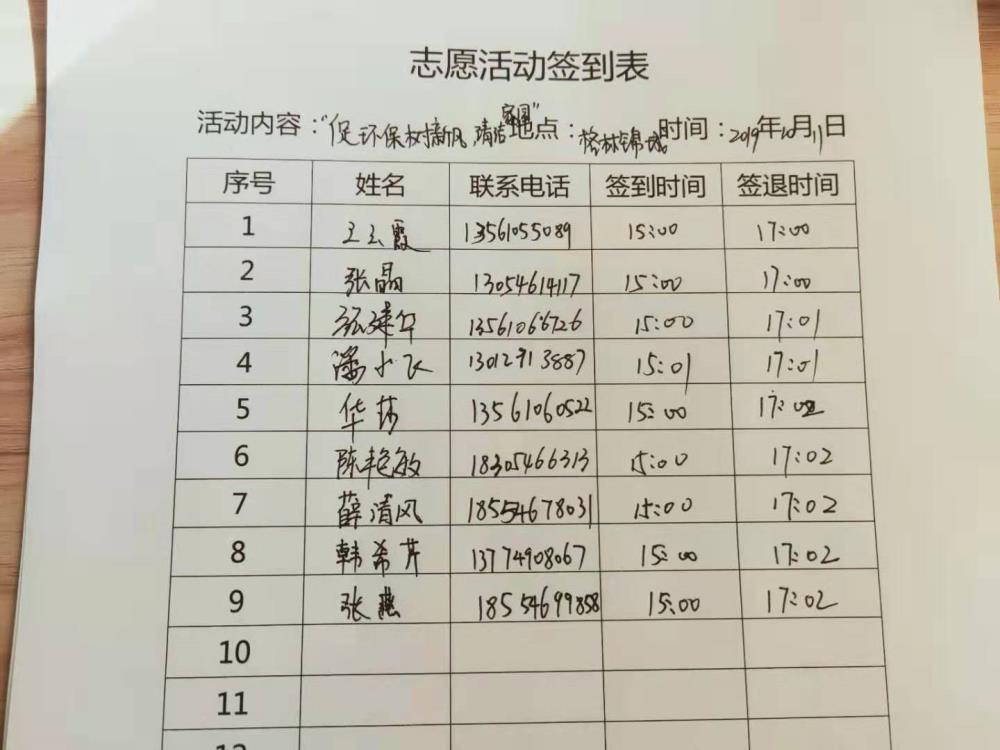 志愿活动签到表
活动内容:"促环保树新风,清洁家园"地点:格林锦城时间:2019年10月11日
序号 姓名 联系电话 签到时间 签退时间
1 王云霞 13561055089 15:00 17:00
2 张晶 13054614117 15:00 17:00
3 张建华 13561066726 15:00 17:01
4 潘小飞 13012713887 15:01 17:01
5 华莎 13561060522 15:00 17:02
6 陈艳敏 18305466313 15:00 17:02
7 薛清风 18554678031 15:00 17:02
8 韩希芹 13774908067 15:00 17:02
9 张燕 18554699858 15:00 17:02
10
11